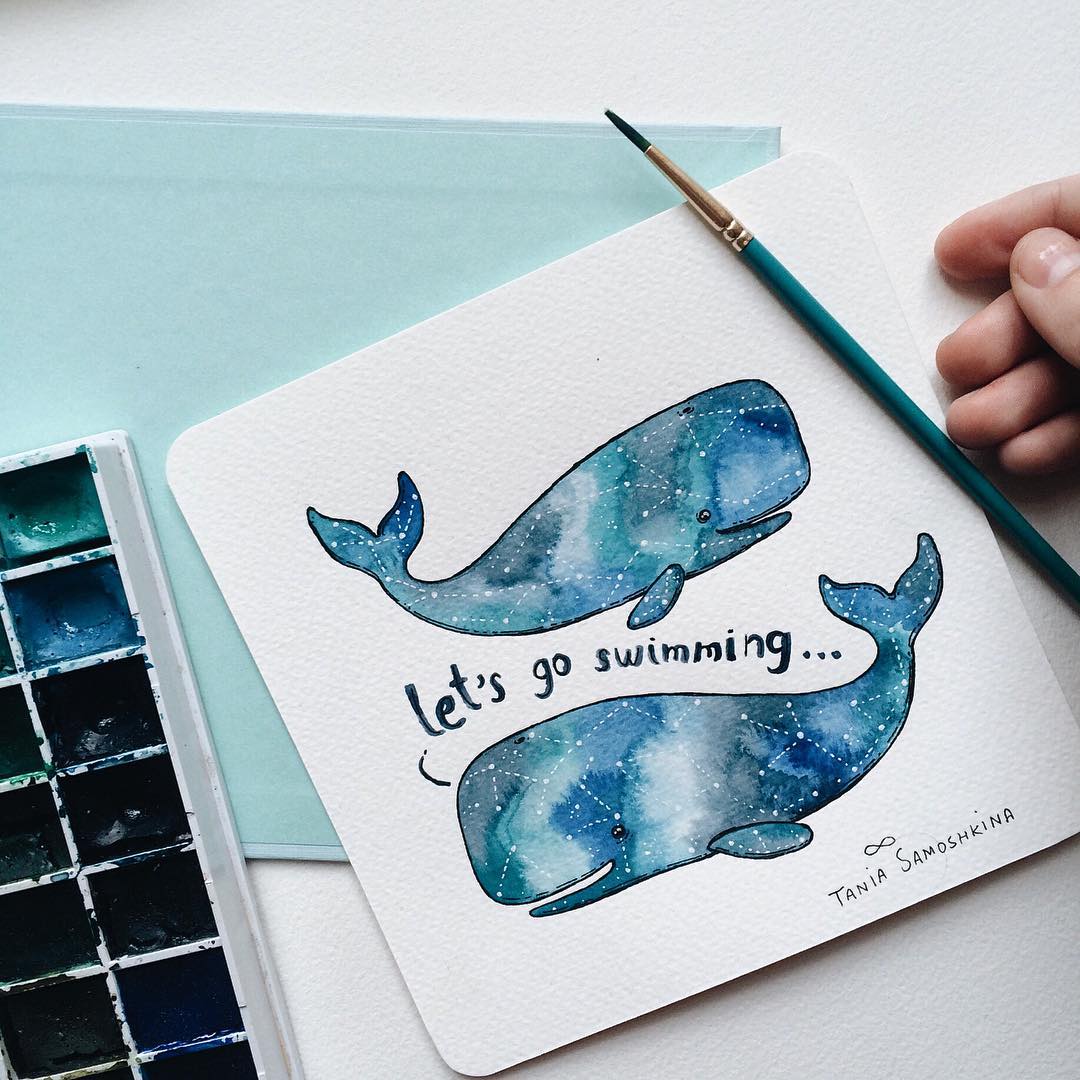 let's go swimming...
∞
TANIA SAMOSHKINA